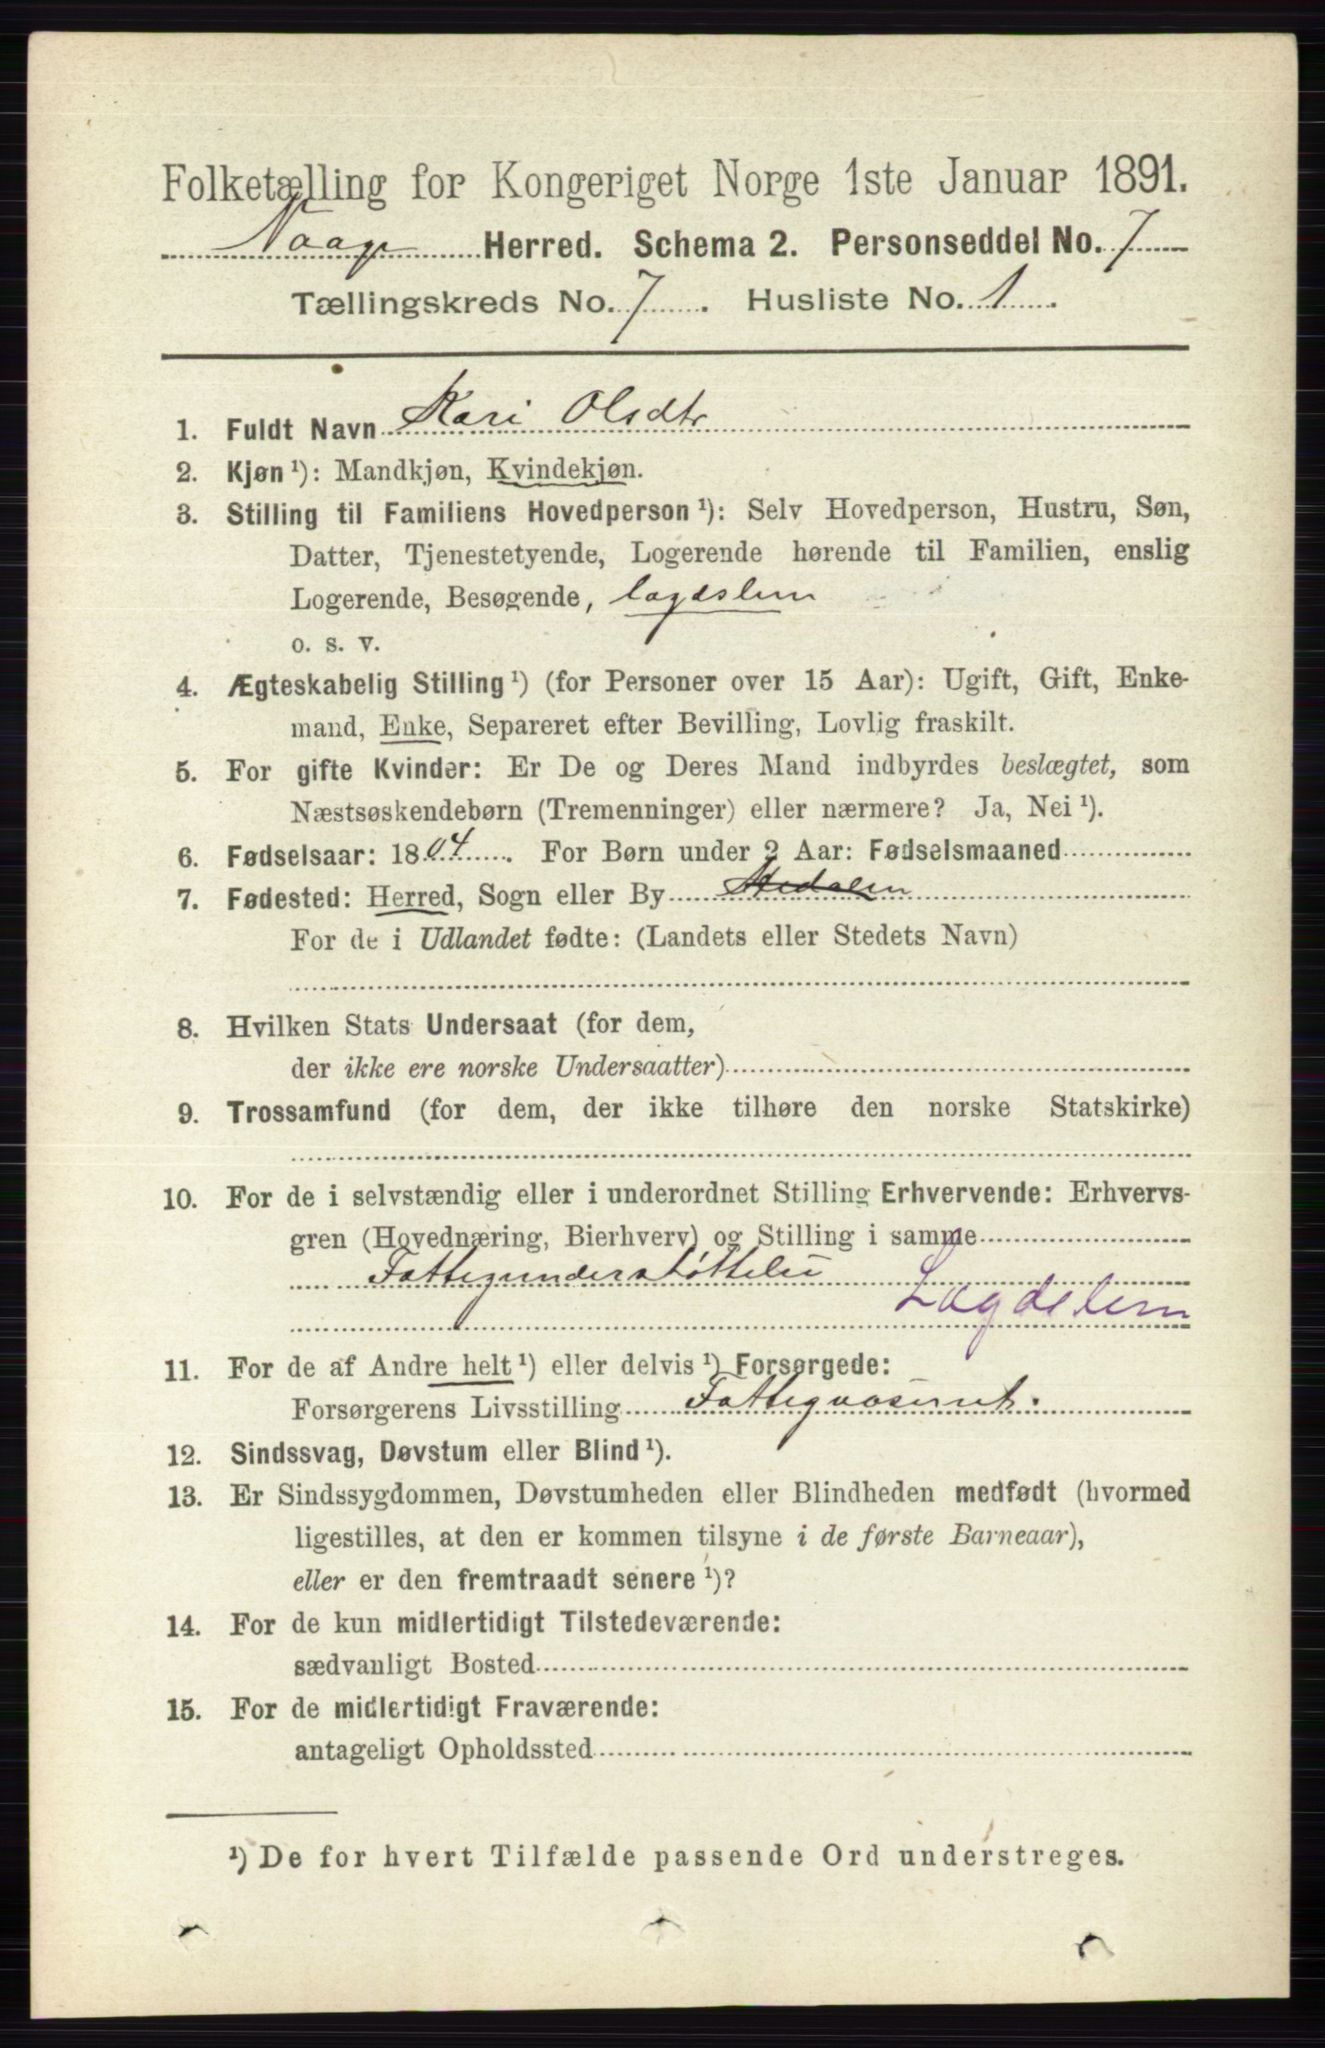 Folketælling for Kongeriget Norge 1ste Januar 1891.
Vaage Herred. Schema 2. Personseddel No. 7
Tællingskreds No. 7. Husliste No. 1.
1. Fuldt Navn Kari Olsdtr
2. Kjøn ¹): Mandkjøn, Kvindekjøn.
3. Stilling til Familiens Hovedperson ¹): Selv Hovedperson, Hustru, Søn,
Datter, Tjenestetyende, Logerende hørende til Familien, enslig
Logerende, Besøgende, lægdslem
o. s. v.
4. Ægteskabelig Stilling ¹) (for Personer over 15 Aar): Ugift, Gift, Enke-
mand, Enke, Separeret efter Bevilling, Lovlig fraskilt.
5. For gifte Kvinder: Er De og Deres Mand indbyrdes beslægtet, som
Næstsøskendebørn (Tremenninger) eller nærmere? Ja, Nei ¹).
6. Fødselsaar: 1804. For Børn under 2 Aar: Fødselsmaaned
7. Fødested: Herred, Sogn eller By
For de i Udlandet fødte: (Landets eller Stedets Navn)
8. Hvilken Stats Undersaat (for dem,
der ikke ere norske Undersaatter)
9. Trossamfund (for dem, der ikke tilhøre den norske Statskirke)
10. For de i selvstændig eller i underordnet Stilling Erhvervende: Erhvervs-
gren (Hovednæring, Bierhverv) og Stilling i samme
Fattigunderstøttelse
Lægdslem
11. For de af Andre helt ¹) eller delvis ¹) Forsørgede:
Forsørgerens Livsstilling Fattigvæsenet.
12. Sindssvag, Døvstum eller Blind ¹).
13. Er Sindssygdommen, Døvstumheden eller Blindheden medfødt (hvormed
ligestilles, at den er kommen tilsyne i de første Barneaar),
eller er den fremtraadt senere ¹)?
14. For de kun midlertidigt Tilstedeværende:
sædvanligt Bosted
15. For de midlertidigt Fraværende:
antageligt Opholdssted
¹) De for hvert Tilfælde passende Ord understreges.